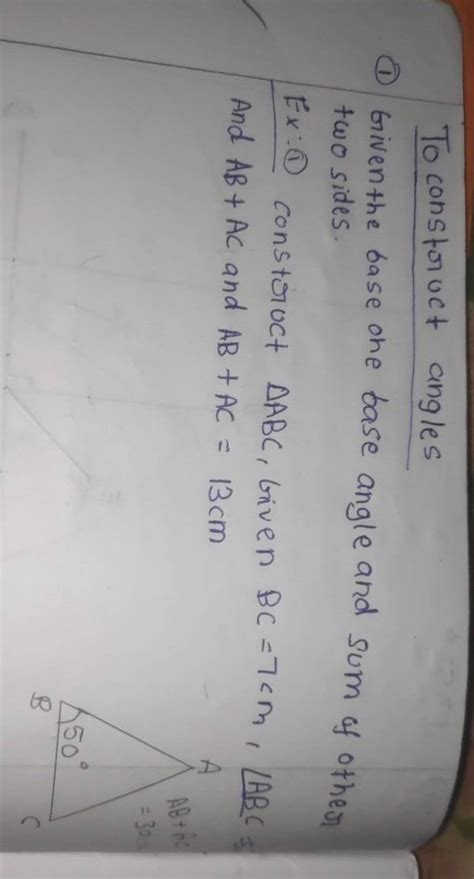 To construct angles
① Given the base one base angle and sum of other
two sides.
Ex:① construct ΔABC, Given BC = 7cm, ∠ABC =
And AB + AC and AB + AC = 13cm
A
AB + AC
B
50°
C